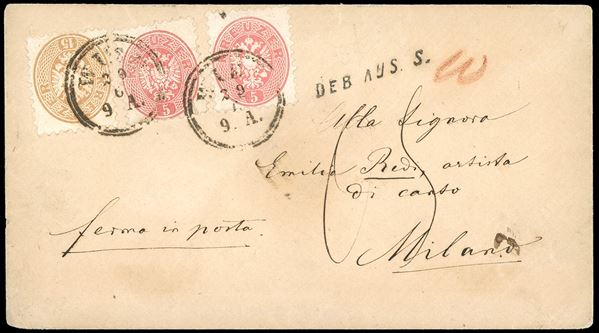 15
KREUZER
5
KREUZER
5
WIEN
9. A.
WIEN
9. A.
DEB AUS. S.
Alla Signora
Emilia Redi, artista
di canto
ferma in posta.
Milano